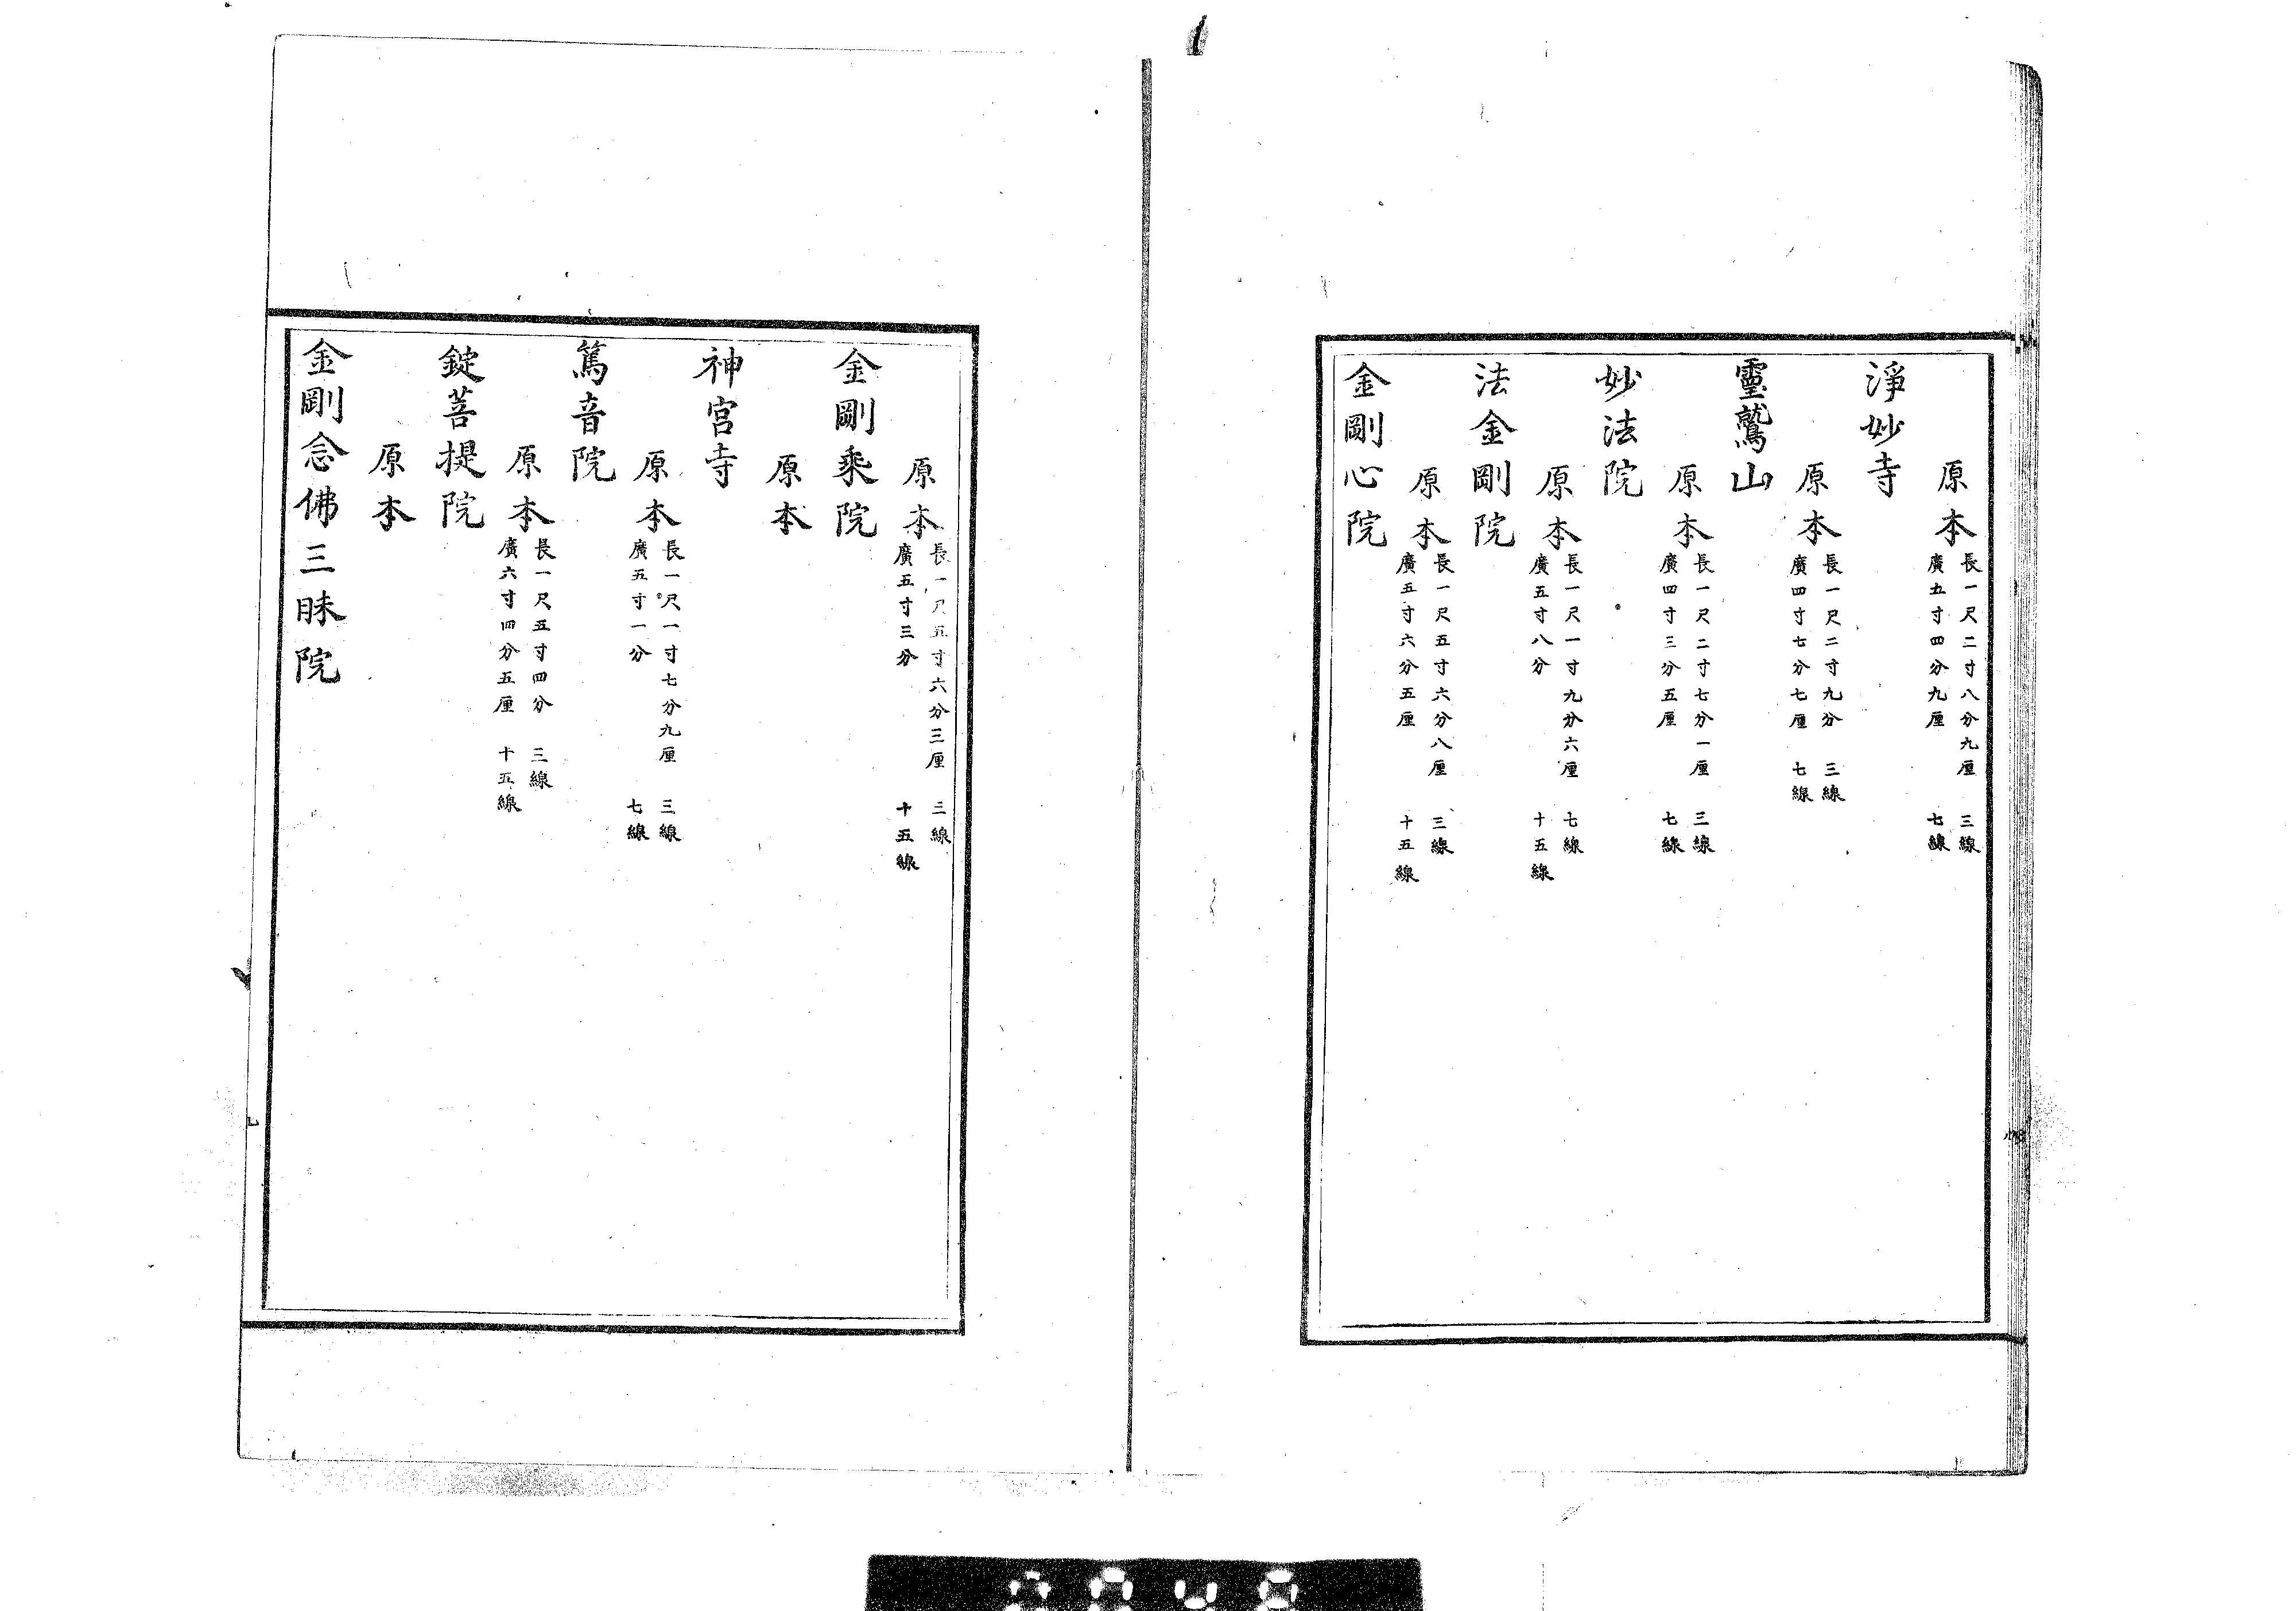 原本 長一尺二寸八分九厘 三線
廣五寸四分九厘 七線
淨妙寺
原本 長一尺二寸九分 三線
廣四寸七分七厘 七線
靈鷲山
原本 長一尺二寸七分一厘 三線
廣四寸三分五厘 七線
妙法院
原本 長一尺一寸九分六厘 七線
廣五寸八分 十五線
法金剛院
原本 長一尺五寸六分八厘 三線
廣五寸六分五厘 十五線
金剛心院
原本 長一尺五寸六分三厘 三線
廣五寸三分 十五線
金剛乘院
原本
神宮寺
原本 長一尺一寸七分九厘 三線
廣五寸一分 七線
篤音院
原本 長一尺五寸四分 三線
廣六寸四分五厘 十五線
錠菩提院
原本
金剛念佛三昧院